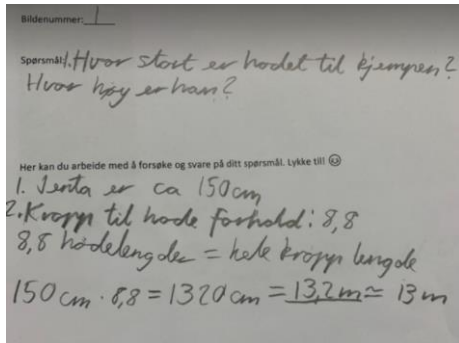 Bildenummer: 1
Spørsmål: 1. Hvor stort er hodet til kjempen?
Hvor høy er han?
Her kan du arbeide med å forsøke og svare på ditt spørsmål. Lykke til! ☺
1. Jenta er ca 150cm
2. Kropp til hode forhold: 8,8
8,8 hodelengder = hele kropp lengde
150cm · 8,8 = 1320cm = 13,2m ≈ 13m